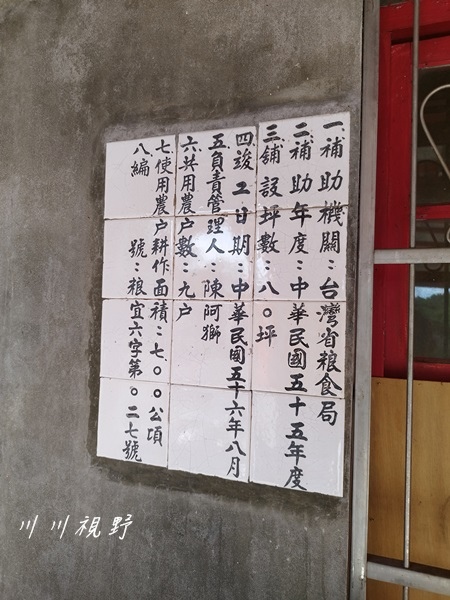 一、補助機關：台灣省粮食局
二、補助年度：中華民國五十五年度
三、舖設坪數：八〇坪
四、竣工日期：中華民國五十六年八月
五、負責管理人：陳阿獅
六、共用農户數：九户
七、使用農户耕作面積：七〇〇公頃
八、編號：粮宜六字第〇二七號
川川視野